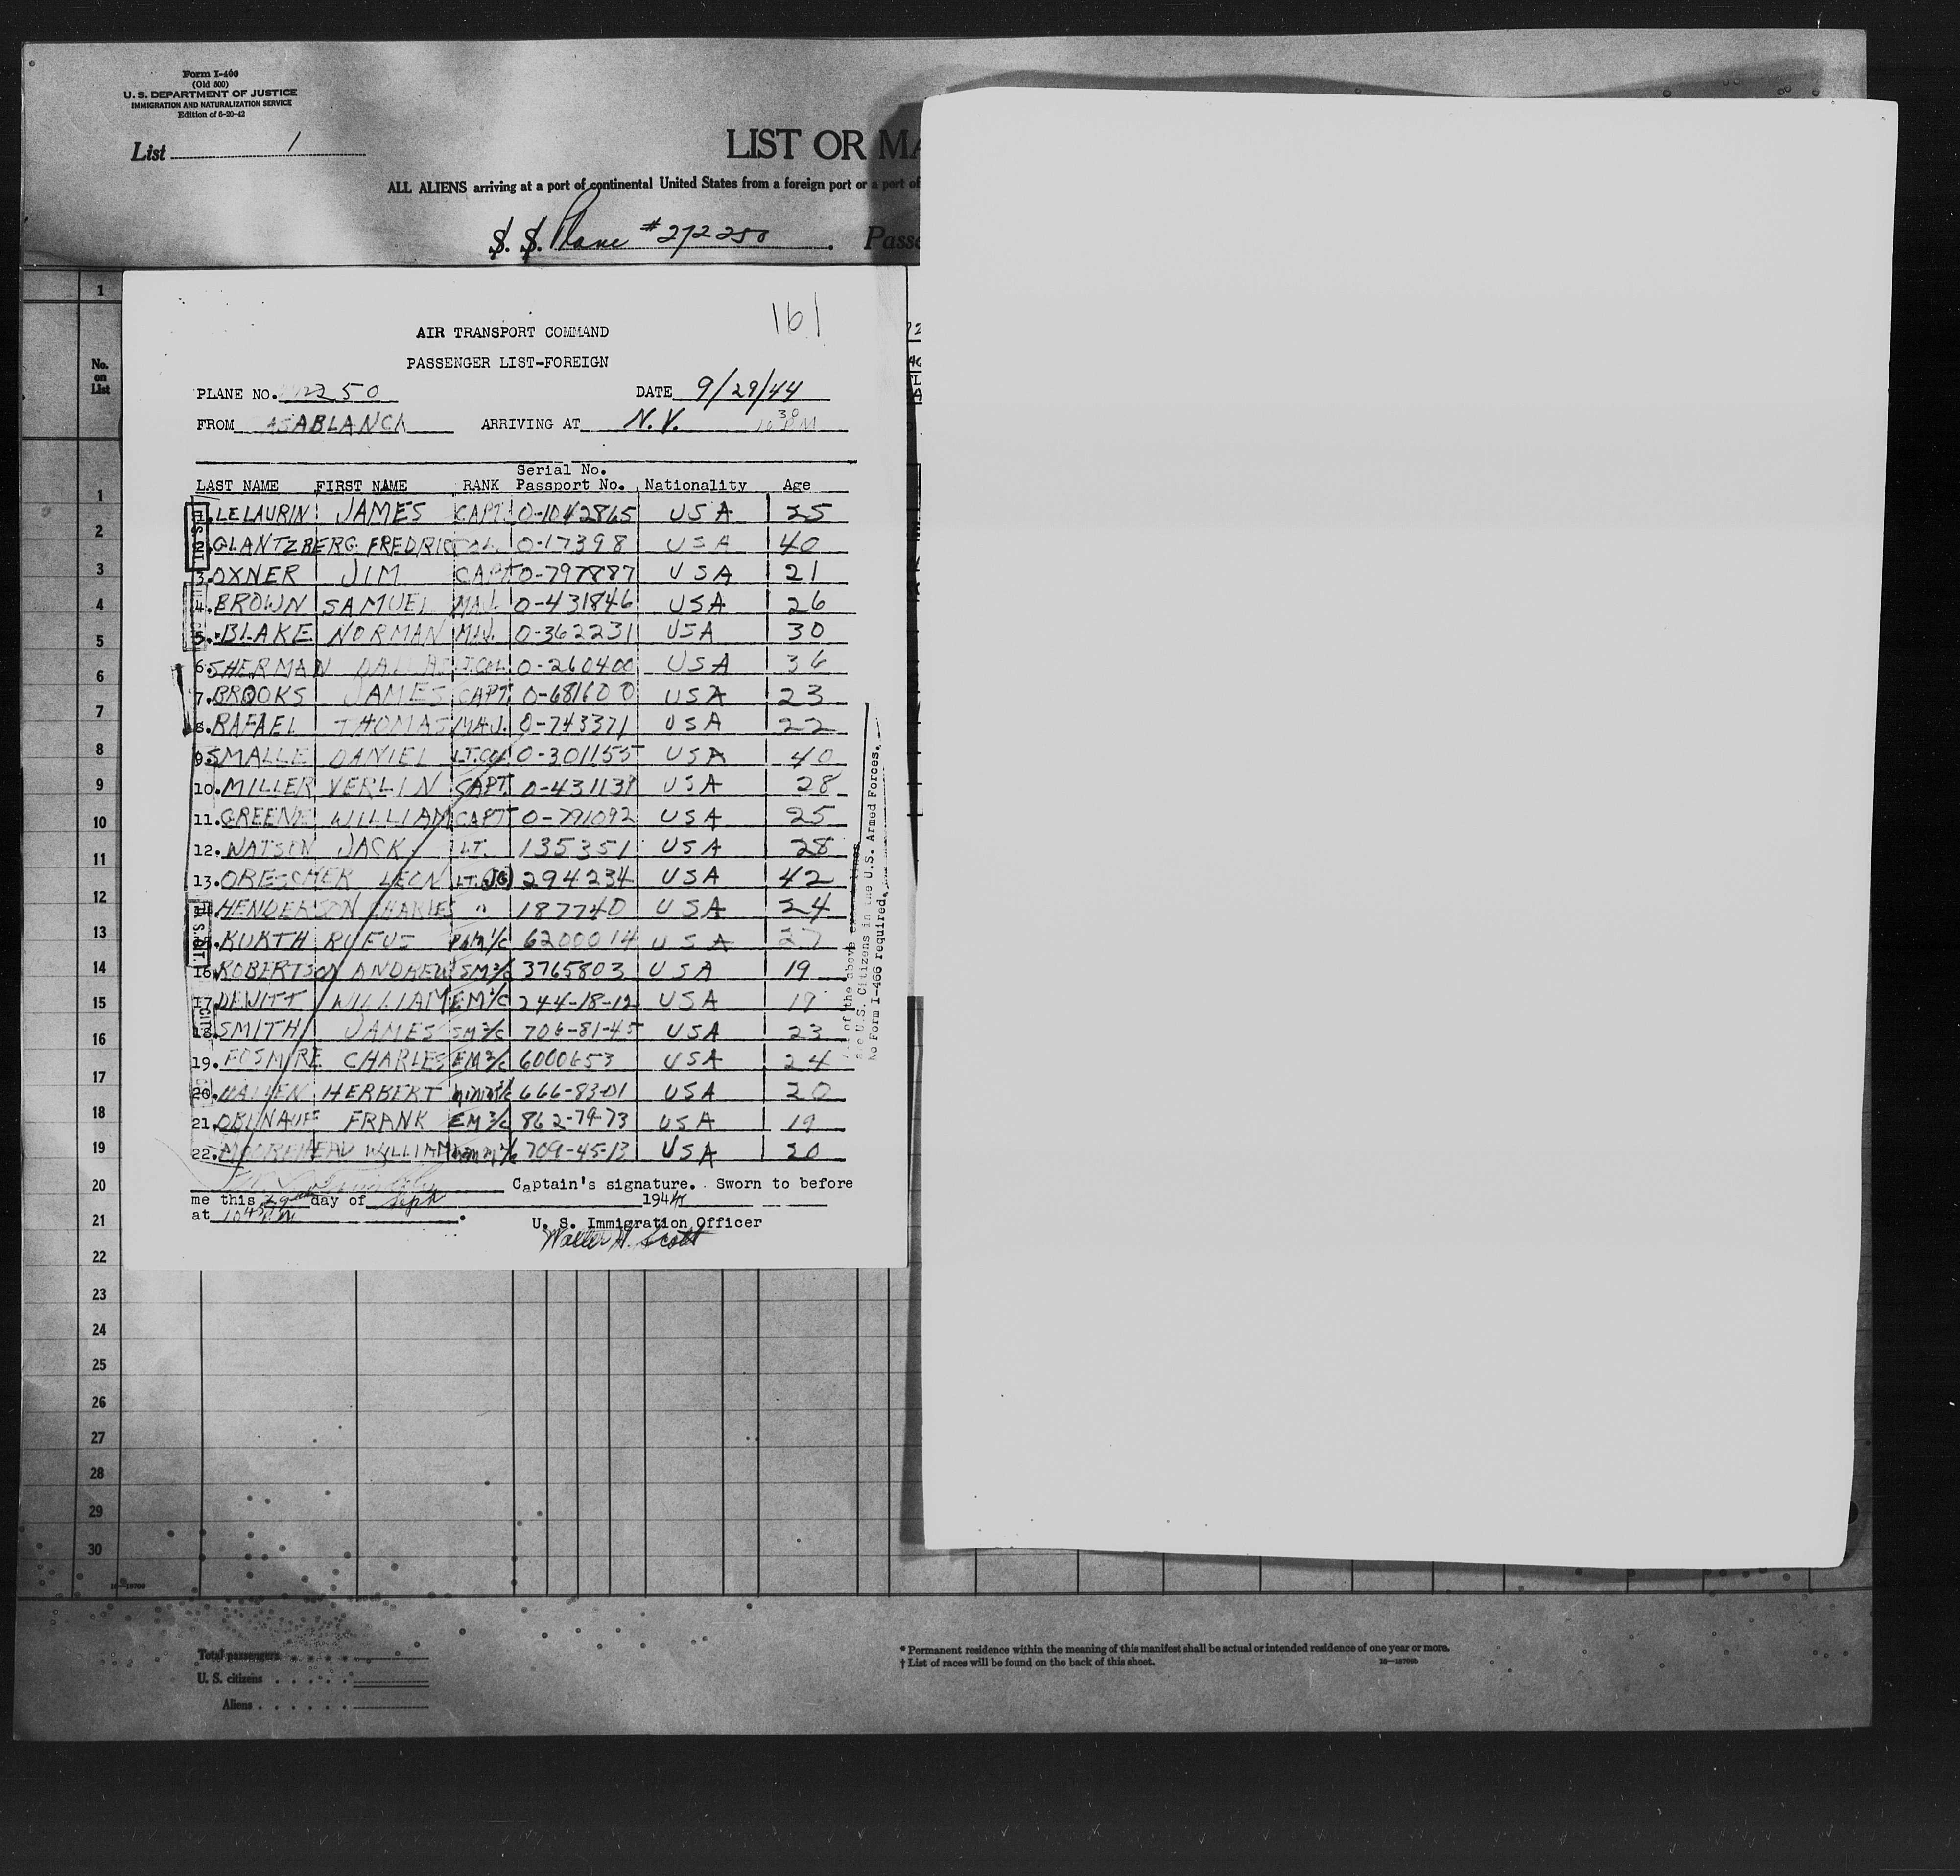 Form I-400
(Old 500)
U. S. DEPARTMENT OF JUSTICE
IMMIGRATION AND NATURALIZATION SERVICE
Edition of 6-20-42
List 1
LIST OR MA
ALL ALIENS arriving at a port of continental United States from a foreign port or a port of
S. S. Plane #272250. Passe
161
AIR TRANSPORT COMMAND
PASSENGER LIST-FOREIGN
PLANE NO. 272250 DATE 9/29/44
FROM CASABLANCA ARRIVING AT N.Y. 10 30 PM
Serial No.
LAST NAME FIRST NAME RANK Passport No. Nationality Age
1. LELAURIN JAMES CAPT. O-1042865 USA 25
2. GLANTZBERG FREDRIC COL. O-17398 USA 40
3. OXNER JIM CAPT O-797887 USA 21
4. BROWN SAMUEL MAJ. O-431846 USA 26
5. BLAKE NORMAN MAJ. O-362231 USA 30
6. SHERMAN DALLAS LT.COL. O-260400 USA 36
7. BROOKS JAMES CAPT. O-681600 USA 23
8. RAFAEL THOMAS MAJ. O-743371 USA 22
9. SMALLE DANIEL LT.COL O-301155 USA 40
10. MILLER VERLIN CAPT. O-431131 USA 28
11. GREENE WILLIAM CAPT O-791092 USA 25
12. WATSON JACK LT. 135351 USA 28
13. LEON LT. (JG) 294234 USA 42
14. HENDERSON CHARLES " 187740 USA 24
15. KURTH RUFUS PHM 1/c 6200014 USA 27
16. ROBERTSON ANDREW SM 3/c 3765803 USA 19
17. DEWITT WILLIAM EM 2/c 244-18-12 USA 19
18. SMITH JAMES SM 3/c 706-81-45 USA 23
19. FOSMIRE CHARLES EM 2/c 6000653 USA 24
20. HERBERT 666-83-01 USA 20
21. FRANK EM 3/c 862-79-73 USA 19
22. MOOREHEAD WILLIAM 709-45-13 USA 20
Captain's signature. Sworn to before
me this 29th day of Sept 1944
at 10 45 PM.
U. S. Immigration Officer
Walter H. Scott
of the above
are U.S. Citizens in the U.S. Armed Forces.
No Form I-466 required.
No.
on
List
1
1
2
3
4
5
6
7
8
9
10
11
12
13
14
15
16
17
18
19
20
21
22
23
24
25
26
27
28
29
30
Total passengers
U. S. citizens
Aliens
* Permanent residence within the meaning of this manifest shall be actual or intended residence of one year or more.
† List of races will be found on the back of this sheet.